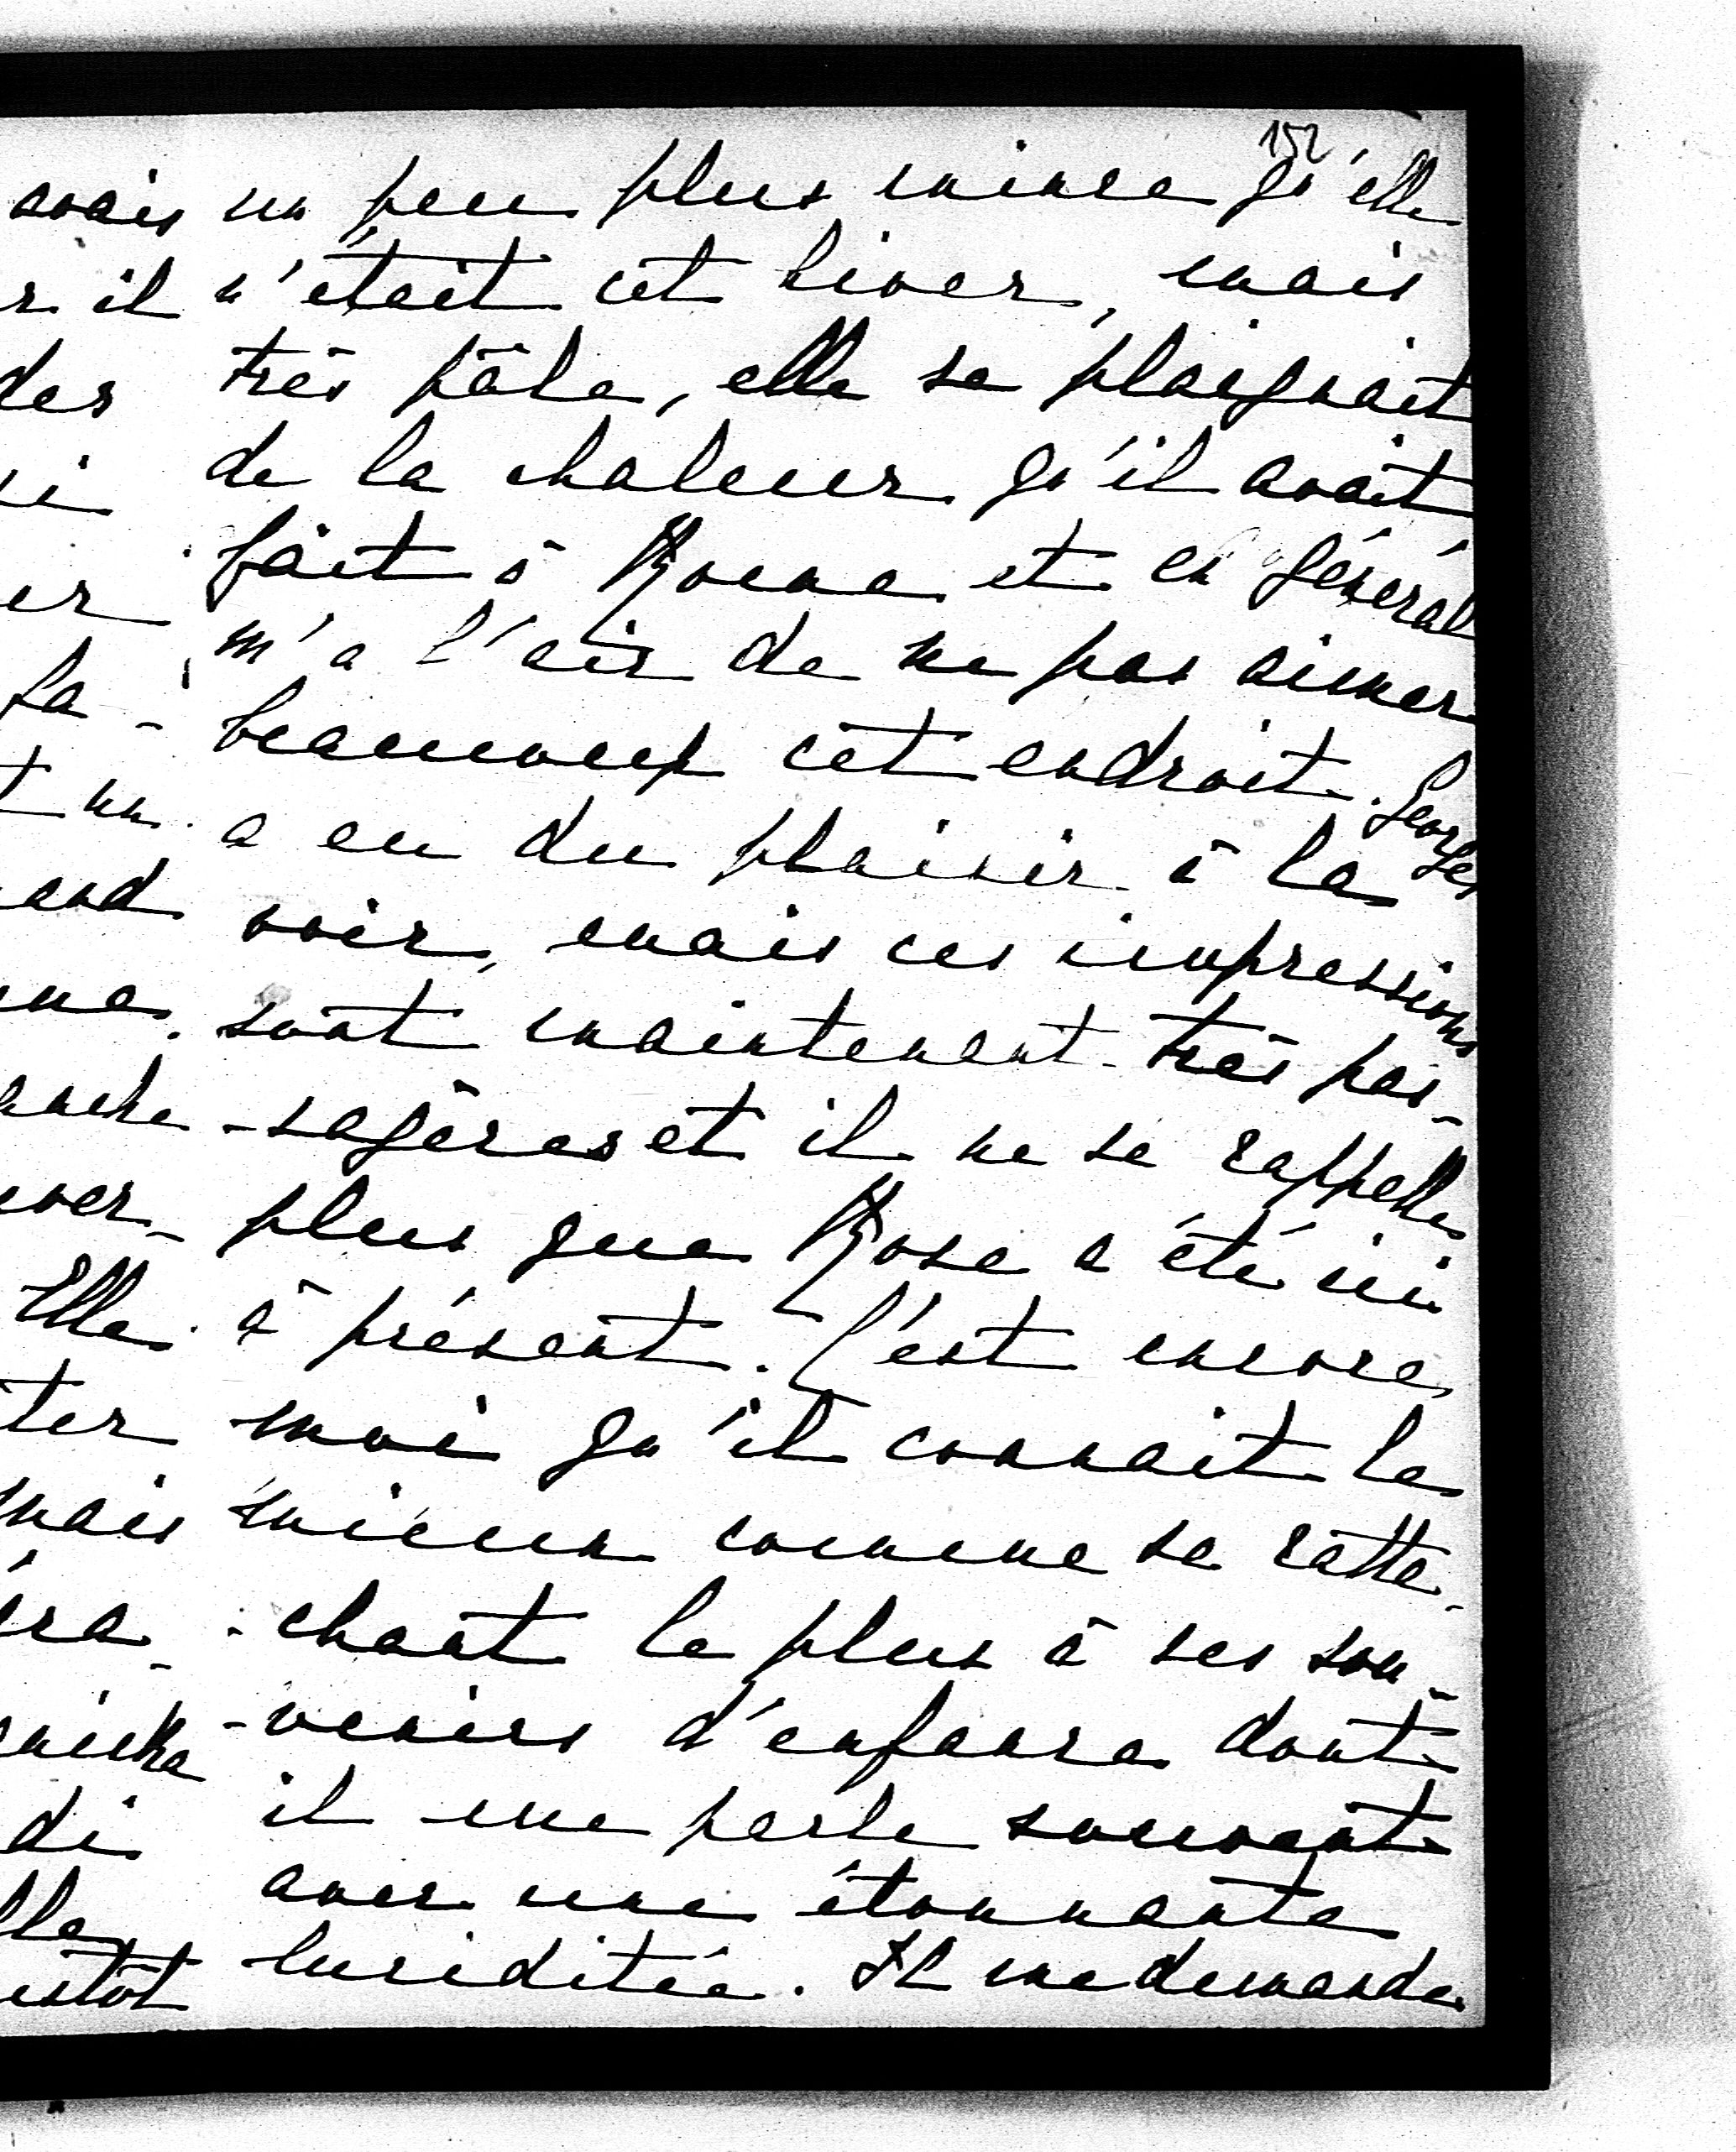 152
avais
r il
des
si
er
fa-
t un
and
ma.
anche
ver-
Elle
ter
mais
ra-
di
lle
un peu plus mince qu'elle
n'était cet hiver, mais
très pâle, elle se plaignait
de la chaleur qu'il avait
fait à Rome et en général
m'a l'air de ne pas aimer
beaucoup cet endroit. Georges
a eu du plaisir à la
voir, mais ces impressions
sont maintenant très pas-
-sagères et il ne se rappelle
plus que Rose a été ici
à présent. C'est encore
moi qu'il connait le
mieux comme se ratta-
-chant le plus à ses sou-
-venirs d'enfance dont
il me parle souvent
avec une étonnante
luciditée. Il me demande